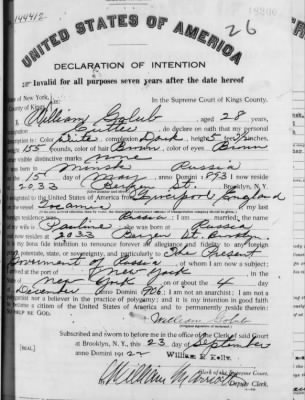 144412
26
UNITED STATES OF AMERICA
DECLARATION OF INTENTION
Invalid for all purposes seven years after the date hereof
of New York,
County of Kings, In the Supreme Court of Kings County.
I, William Golub, aged 28 years,
occupation Cutter, do declare on oath that my personal
description is: Color White, complexion Dark, height 5 feet inches,
155 pounds, color of hair Brown, color of eyes Brown
other visible distinctive marks none
I was born in Minsk Russia
on the 15 day of May, anno Domini 1893 I now reside
at 2033 St., Brooklyn, N. Y.
I emigrated to the United States of America from Liverpool England
my last
foreign residence was Russia I am married, the name
of my wife is Pauline she was born at Russia
and now resides at 2033 St. Brooklyn.
It is my bona fide intention to renounce forever all allegiance and fidelity to any foreign
prince, potentate, state, or sovereignty, and particularly to The Present
Government of Russia, of whom I am now a subject;
I arrived at the port of New York, in the
State of New York on or about the 4 day
of December, anno Domini 1906: I am not an anarchist; I am not a
polygamist nor a believer in the practice of polygamy; and it is my intention in good faith
to become a citizen of the United States of America and to permanently reside therein:
SO HELP ME GOD.
William Golub
Subscribed and sworn to before me in the office of the Clerk of said Court
at Brooklyn, N. Y., this 23 day of September
anno Domini 1922
William E. Kelly.
Clerk of the Supreme Court.
By William Deputy Clerk.